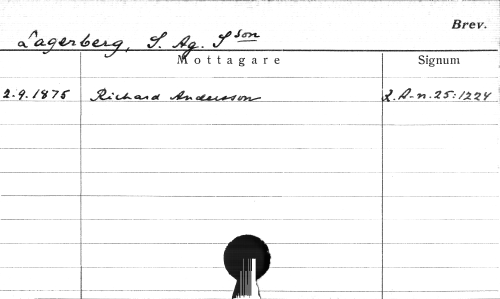 Brev.
Lagerberg, S. Ag. Sson
Mottagare Signum
2.9.1875 Richard Andersson 2.A-n.25:1224